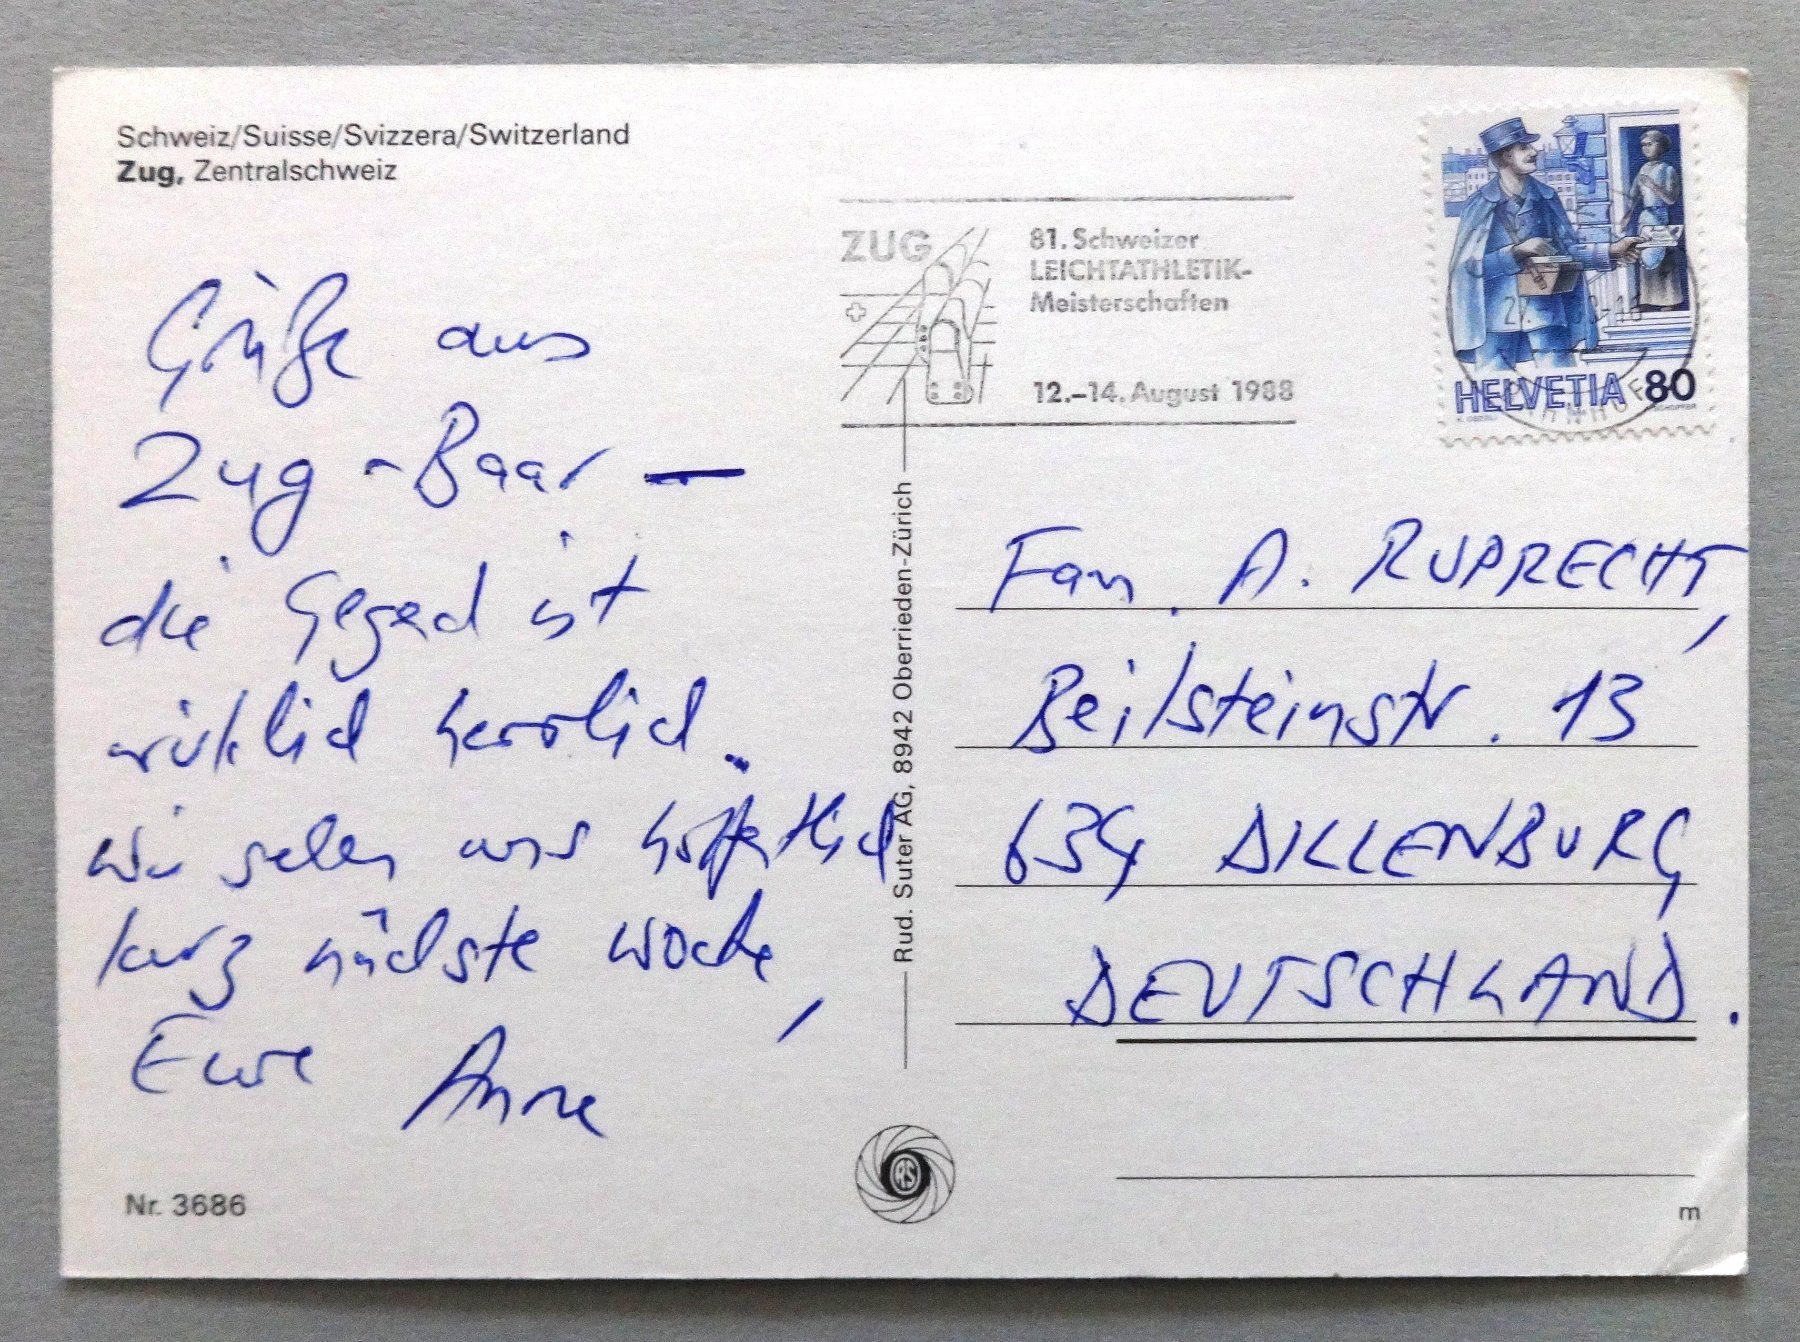 Schweiz/Suisse/Svizzera/Switzerland
Zug, Zentralschweiz
Grüße aus
Zug - Baar —
die Gegend ist
wirklich herrlich.
Wir sehen uns hoffentlich
kurz nächste Woche,
Eure Anne
Nr. 3686
Rud. Suter AG, 8942 Oberrieden-Zürich
RS
ZUG
81. Schweizer
LEICHTATHLETIK-
Meisterschaften
12.-14. August 1988
HELVETIA 80
Fam. A. RUPRECHT,
Beilsteinstr. 13
634 DILLENBURG,
DEUTSCHLAND.
m